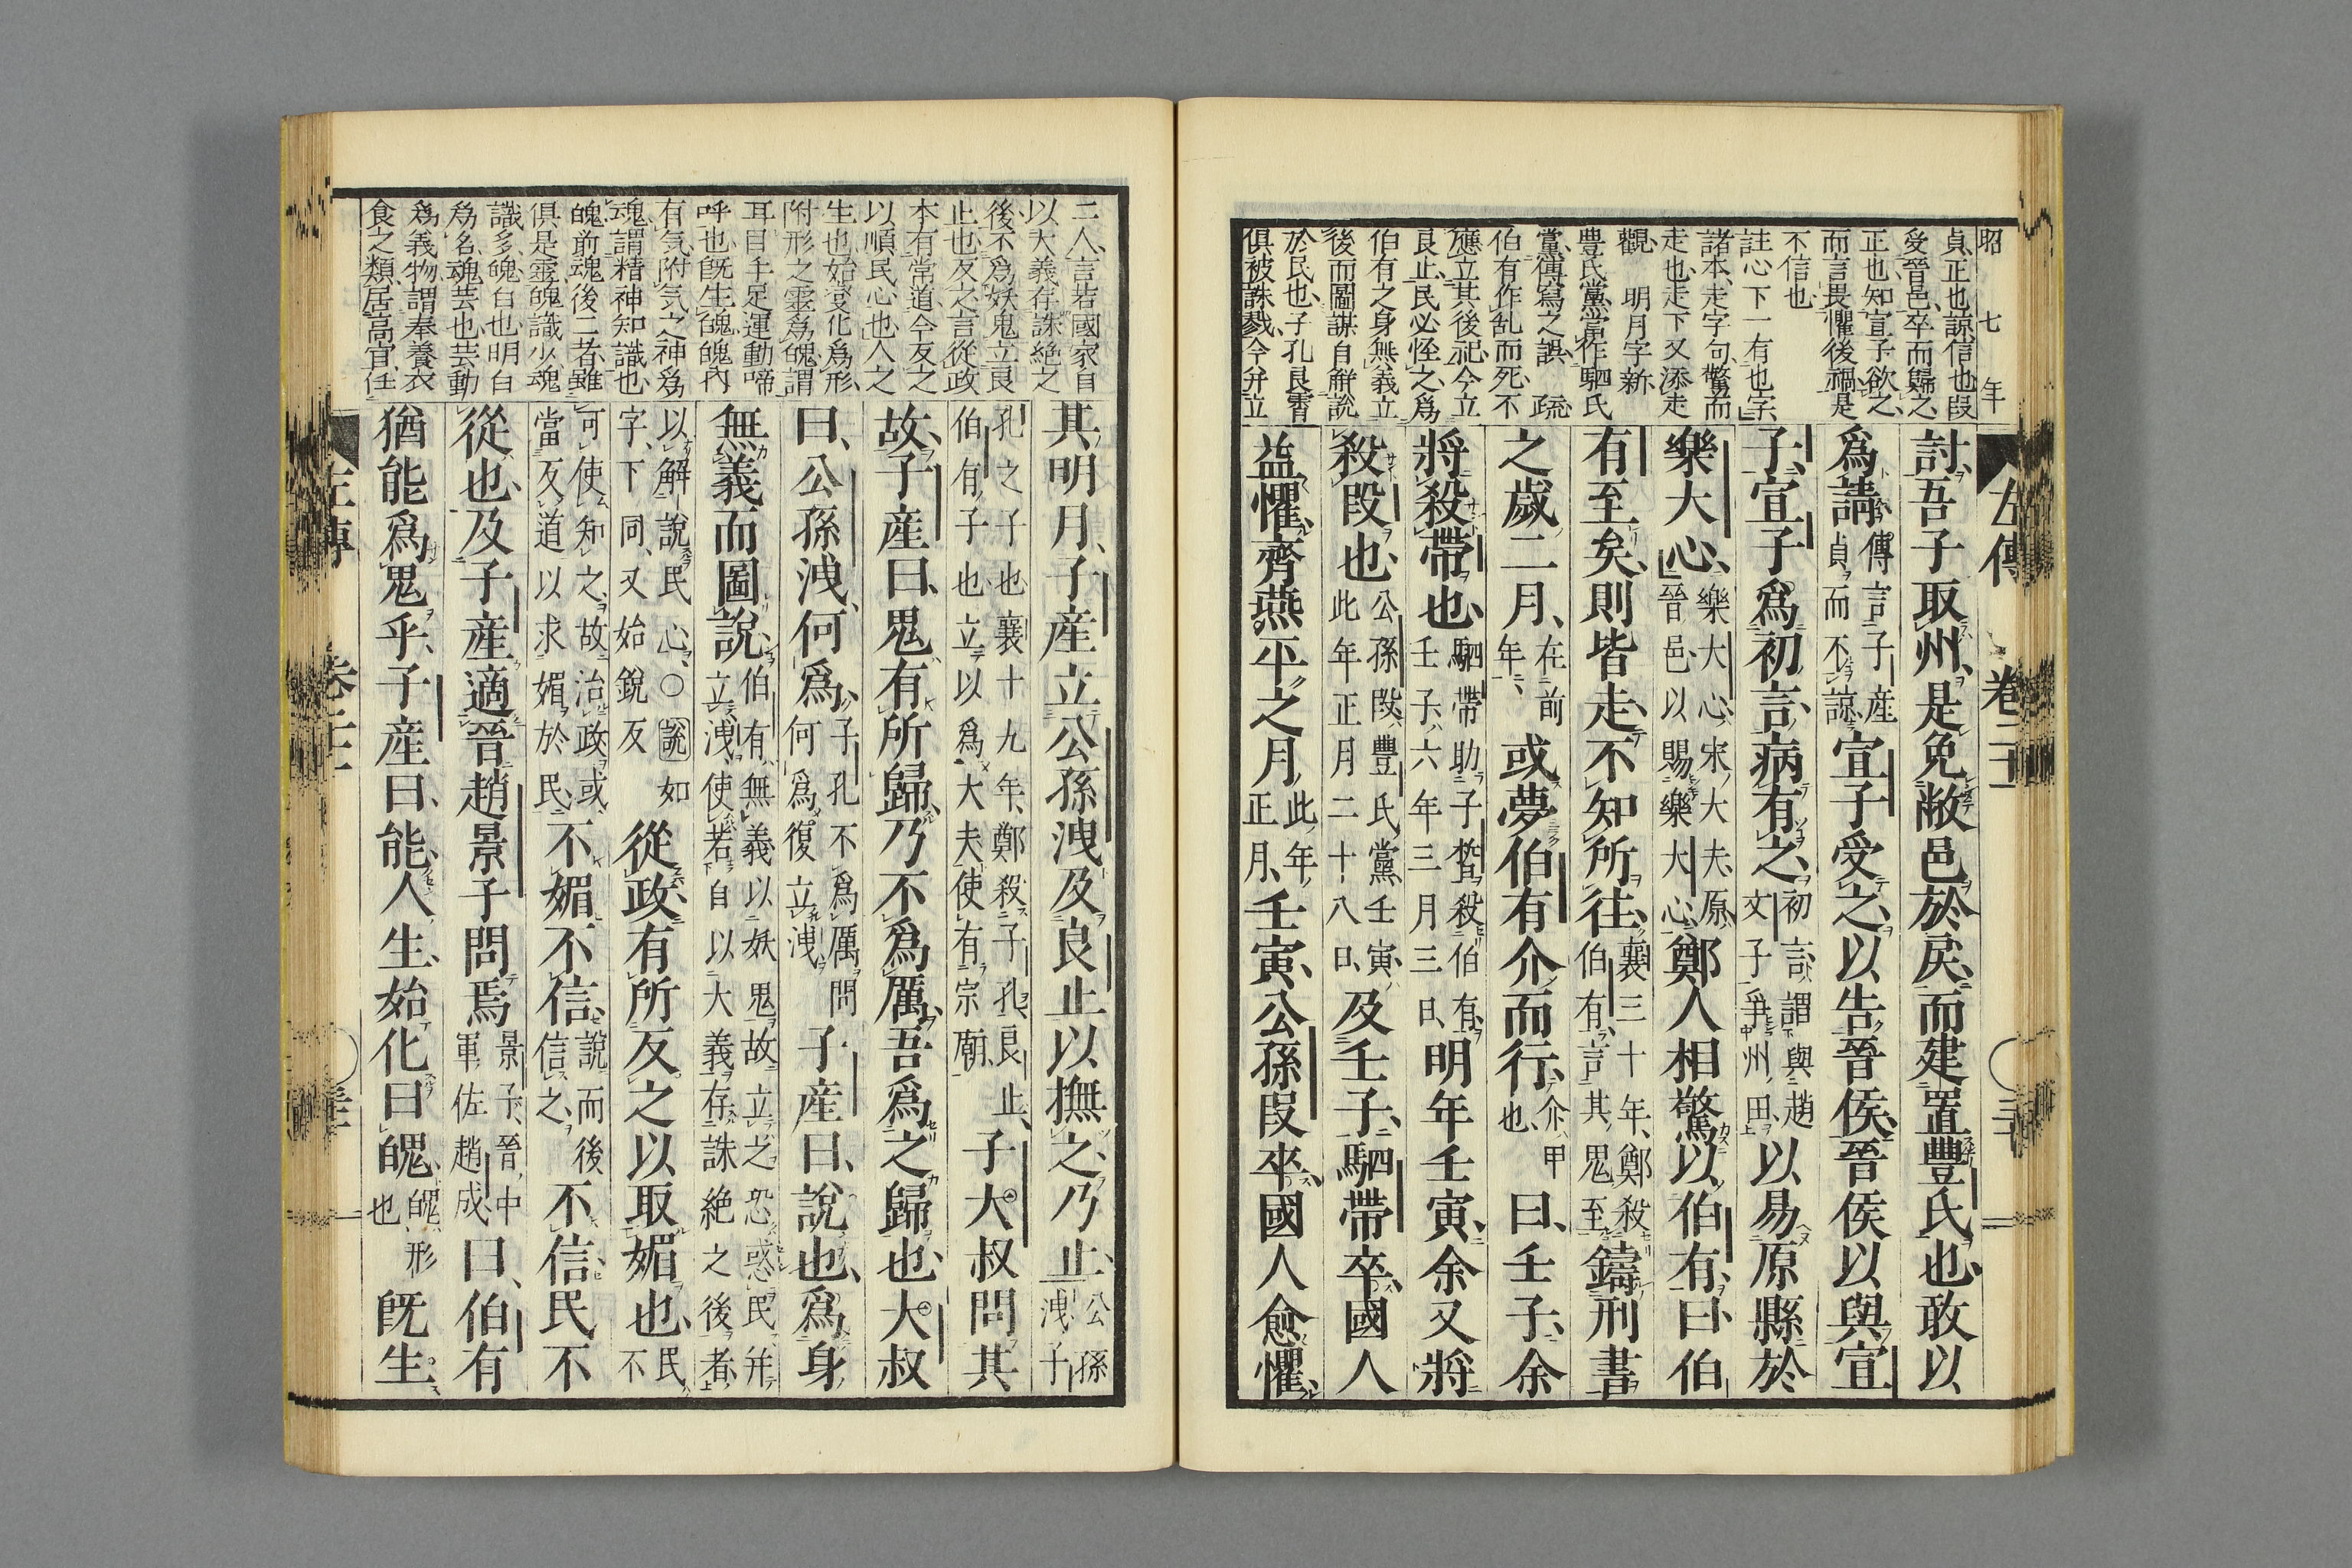 昭七年
貞正也諒信也段
受晉邑卒而歸之
正也知宣子欲之
而言畏懼後禍是
不信也
註心下一有也字
諸本走字句驚而
走也走下又添走
觀 明月字新
豊氏黨當作駟氏
黨傳寫之誤 疏
伯有作乱而死不
應立其後祀今立
良止民必怪之爲
伯有之身無義立
後而圖謀自觧說
於民也子孔良霄
俱被誅戮今并立
左傳 卷二十一
討吾子取州是免敝邑於戾而建置豐氏也敢以
爲請傳言子産貞而不諒宣子受之以告晉侯晉侯以與宣
子宣子爲初言病有之初言謂與趙文子爭州田以易原縣於
樂大心樂大心宋大夫原晉邑以賜樂大心鄭人相驚以伯有曰伯
有至矣則皆走不知所往襄三十年鄭殺伯有言其鬼至鑄刑書
之歲二月在前年或夢伯有介而行介甲也曰壬子余
將殺帶也駟帶助子晳殺伯有壬子六年三月三日明年壬寅余又將
殺段也公孫段豐氏黨壬寅此年正月二十八日及壬子駟帶卒國人
益懼齊燕平之月此年正月壬寅公孫段卒國人愈懼
二人言若國家自
以大義存誅絶之
後不爲妖鬼立良
止也反之言從政
本有常道今反之
以順民心也人之
生也始變化爲形
附形之靈爲魄謂
耳目手足運動啼
呼也旣生魄魄內
有気附気之神爲
魂謂精神知識也
魄前魂後二者雖
俱是靈魄識少魂
識多魄白也明白
爲名魂芸也芸動
爲義物謂奉養衣
食之類居高官任
其明月子産立公孫洩及良止以撫之乃止公孫洩子
孔之子也襄十九年鄭殺子孔良止伯有子也立以爲大夫使有宗廟子大叔問其
故子産曰鬼有所歸乃不爲厲吾爲之歸也大叔
曰公孫洩何爲子孔不爲厲問何爲復立洩子産曰說也爲身
無義而圖說伯有無義以妖鬼故立之恐惑民并立洩使若自以大義存誅絶之後者
以解說民心○說如字下同又始銳反從政有所反之以取媚也民不
可使知之故治政或當反道以求媚於民不媚不信說而後信之不信民不
從也及子産適晉趙景子問焉景子晉中軍佐趙成曰伯有
猶能爲鬼乎子産曰能人生始化曰魄魄形也旣生
左傳